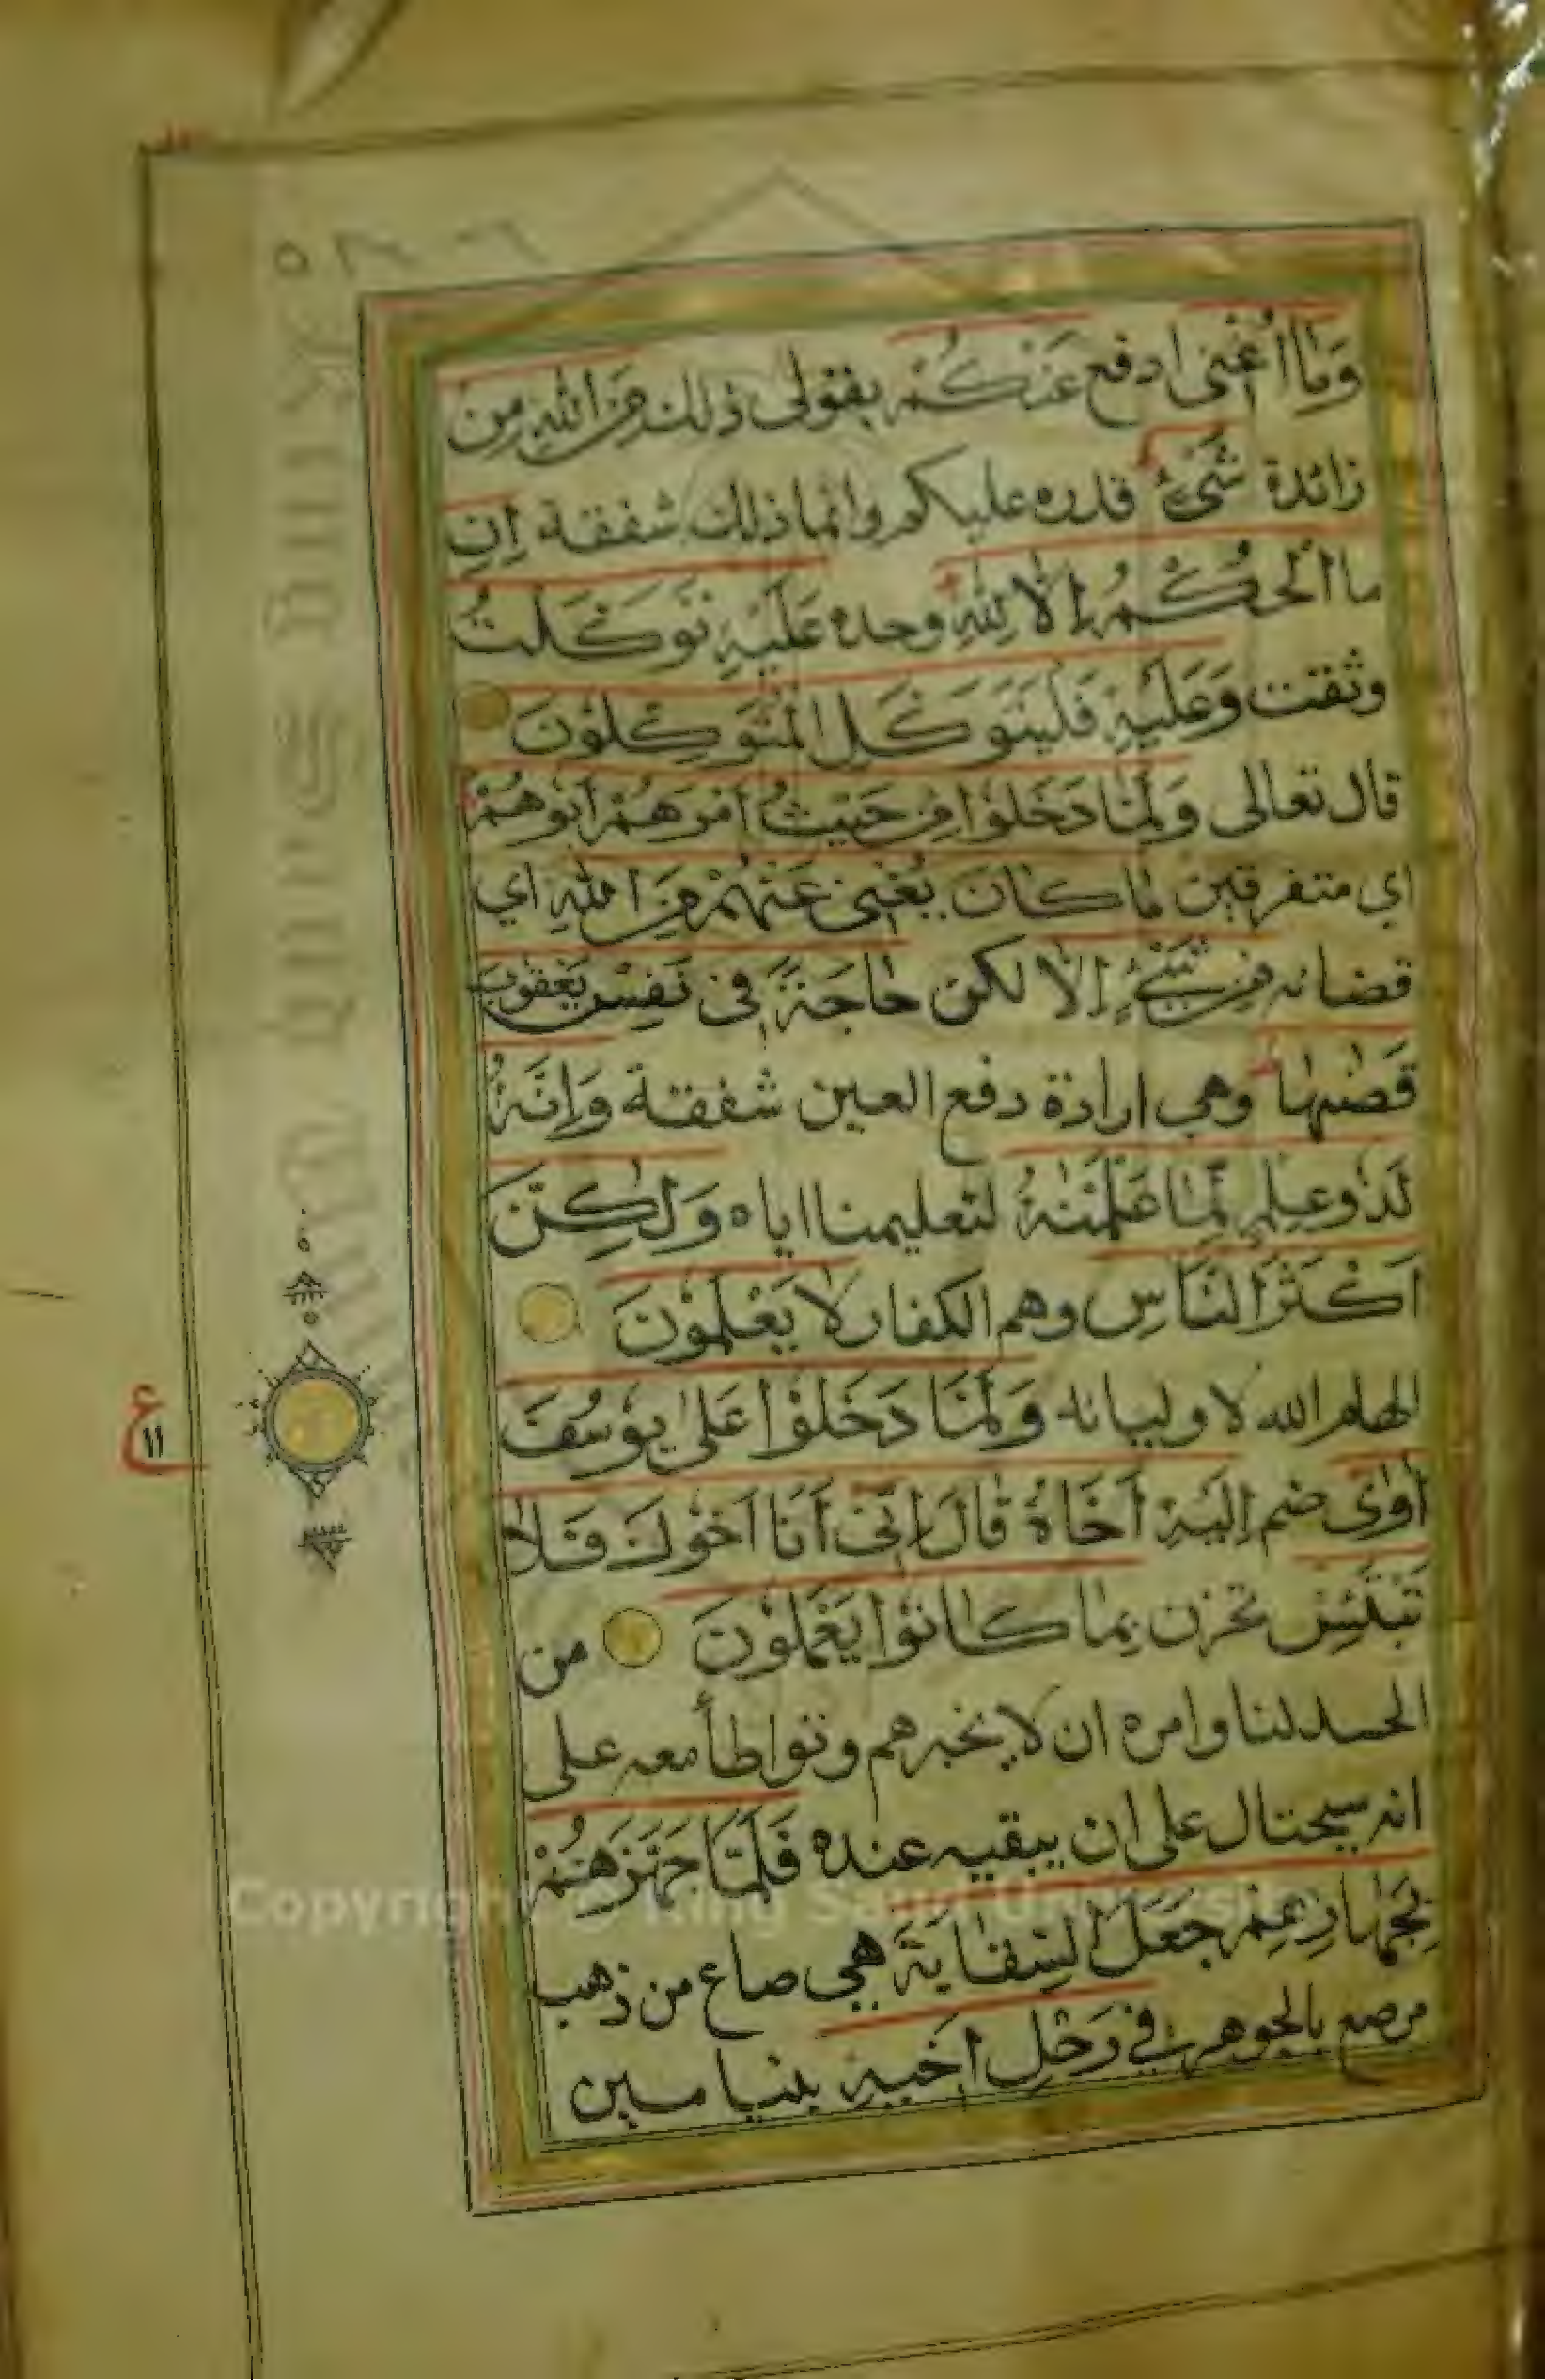 وَمَا أُغْنِي ادفع عَنكُمْ بقولى ذلك مِنَ اللهِ مِنْ
زائدة شَيْءٍ قدره عليكم وانما ذلك شفقة إِنِ
ما الْحُكْمُ إِلَّا لِلَّهِ وحده عَلَيْهِ تَوَكَّلْتُ
وثقت وَعَلَيْهِ فَلْيَتَوَكَّلِ الْمُتَوَكِّلُوْنَ
قال تعالى وَلَمَّا دَخَلُوْا مِنْ حَيْثُ أَمَرَهُمْ أَبُوْهُمْ
اي متفرقين مَا كَانَ يُغْنِى عَنْهُمْ مِنَ اللهِ اي
قضائه مِنْ شَيْءٍ إِلَّا لكن حَاجَةً فِى نَفْسِ يَعْقُوْبَ
قَضٰىهَا وهي ارادة دفع العين شفقة وَاِنَّهُ
لَذُوْ عِلْمٍ لِمَا عَلَّمْنٰهُ لتعليمنا اياه وَلٰكِنَّ
اَكْثَرَ النَّاسِ وهم الكفار لَا يَعْلَمُوْنَ
الهام الله لاوليائه وَلَمَّا دَخَلُوْا عَلٰى يُوْسُفَ
اٰوٰى ضم اِلَيْهِ اَخَاهُ قَالَ اِنِّىْ اَنَا اَخُوْكَ فَلَا
تَبْتَئِسْ تحزن بِمَا كَانُوْا يَعْمَلُوْنَ من
الحسد لنا وامره ان لا يخبرهم وتواطأ معه على
انه سيحتال على ان يبقيه عنده فَلَمَّا جَهَّزَهُمْ
بِجَهَازِهِمْ جَعَلَ السِّقَايَةَ هي صاع من ذهب
مرصع بالجوهر فِي رَحْلِ اَخِيْهِ بنيامين
ع
١١
Copyright © King Saud University